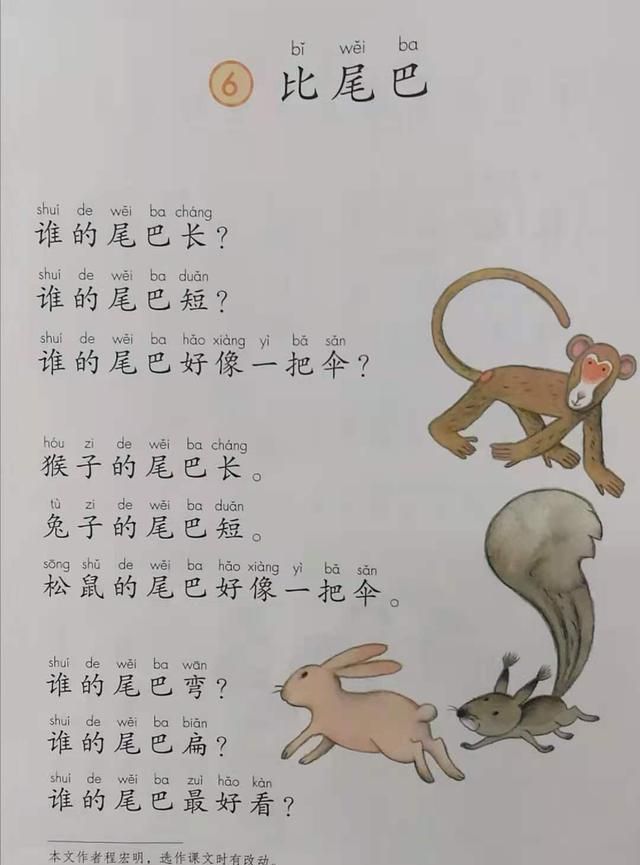 bǐ wěi ba
6 比尾巴
shuí de wěi ba cháng
谁的尾巴长？
shuí de wěi ba duǎn
谁的尾巴短？
shuí de wěi ba hǎo xiàng yì bǎ sǎn
谁的尾巴好像一把伞？
hóu zi de wěi ba cháng
猴子的尾巴长。
tù zi de wěi ba duǎn
兔子的尾巴短。
sōng shǔ de wěi ba hǎo xiàng yì bǎ sǎn
松鼠的尾巴好像一把伞。
shuí de wěi ba wān
谁的尾巴弯？
shuí de wěi ba biǎn
谁的尾巴扁？
shuí de wěi ba zuì hǎo kàn
谁的尾巴最好看？
本文作者程宏明，选作课文时有改动。